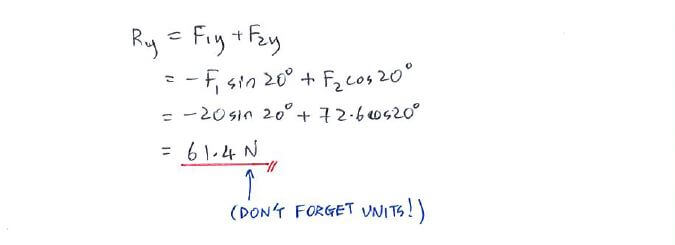 Ry = F1y + F2y
= -F1 sin 20° + F2 cos 20°
= -20 sin 20° + 72.6 cos 20°
= 61.4 N
(DON'T FORGET UNITS!)